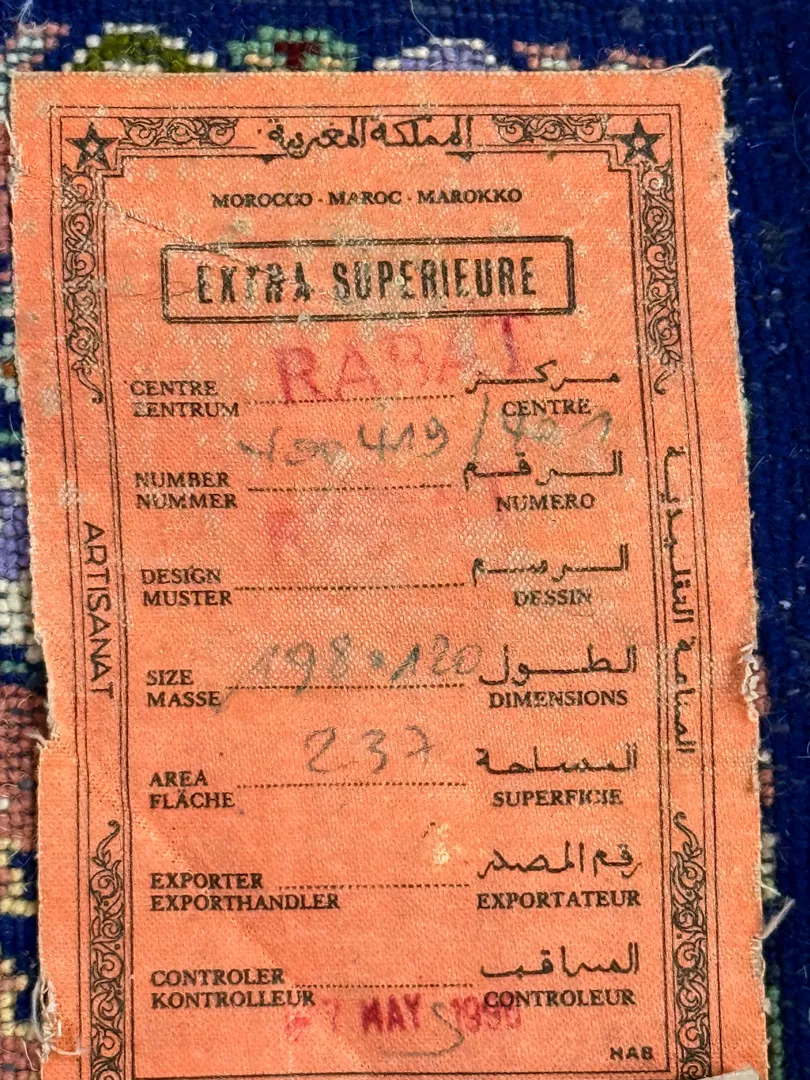 المملكة المغربية
MOROCCO - MAROC - MAROKKO
EXTRA SUPERIEURE
RABAT
CENTRE مركز
ZENTRUM CENTRE
419 /
NUMBER الرقم
NUMMER NUMERO
DESIGN الرسم
MUSTER DESSIN
198 · 120
SIZE الطول
MASSE DIMENSIONS
237
AREA المساحة
FLÄCHE SUPERFICIE
EXPORTER رقم المصدر
EXPORTHANDLER EXPORTATEUR
CONTROLER المراقب
KONTROLLEUR CONTROLEUR
7 MAY
HAB
ARTISANAT
الصناعة التقليدية